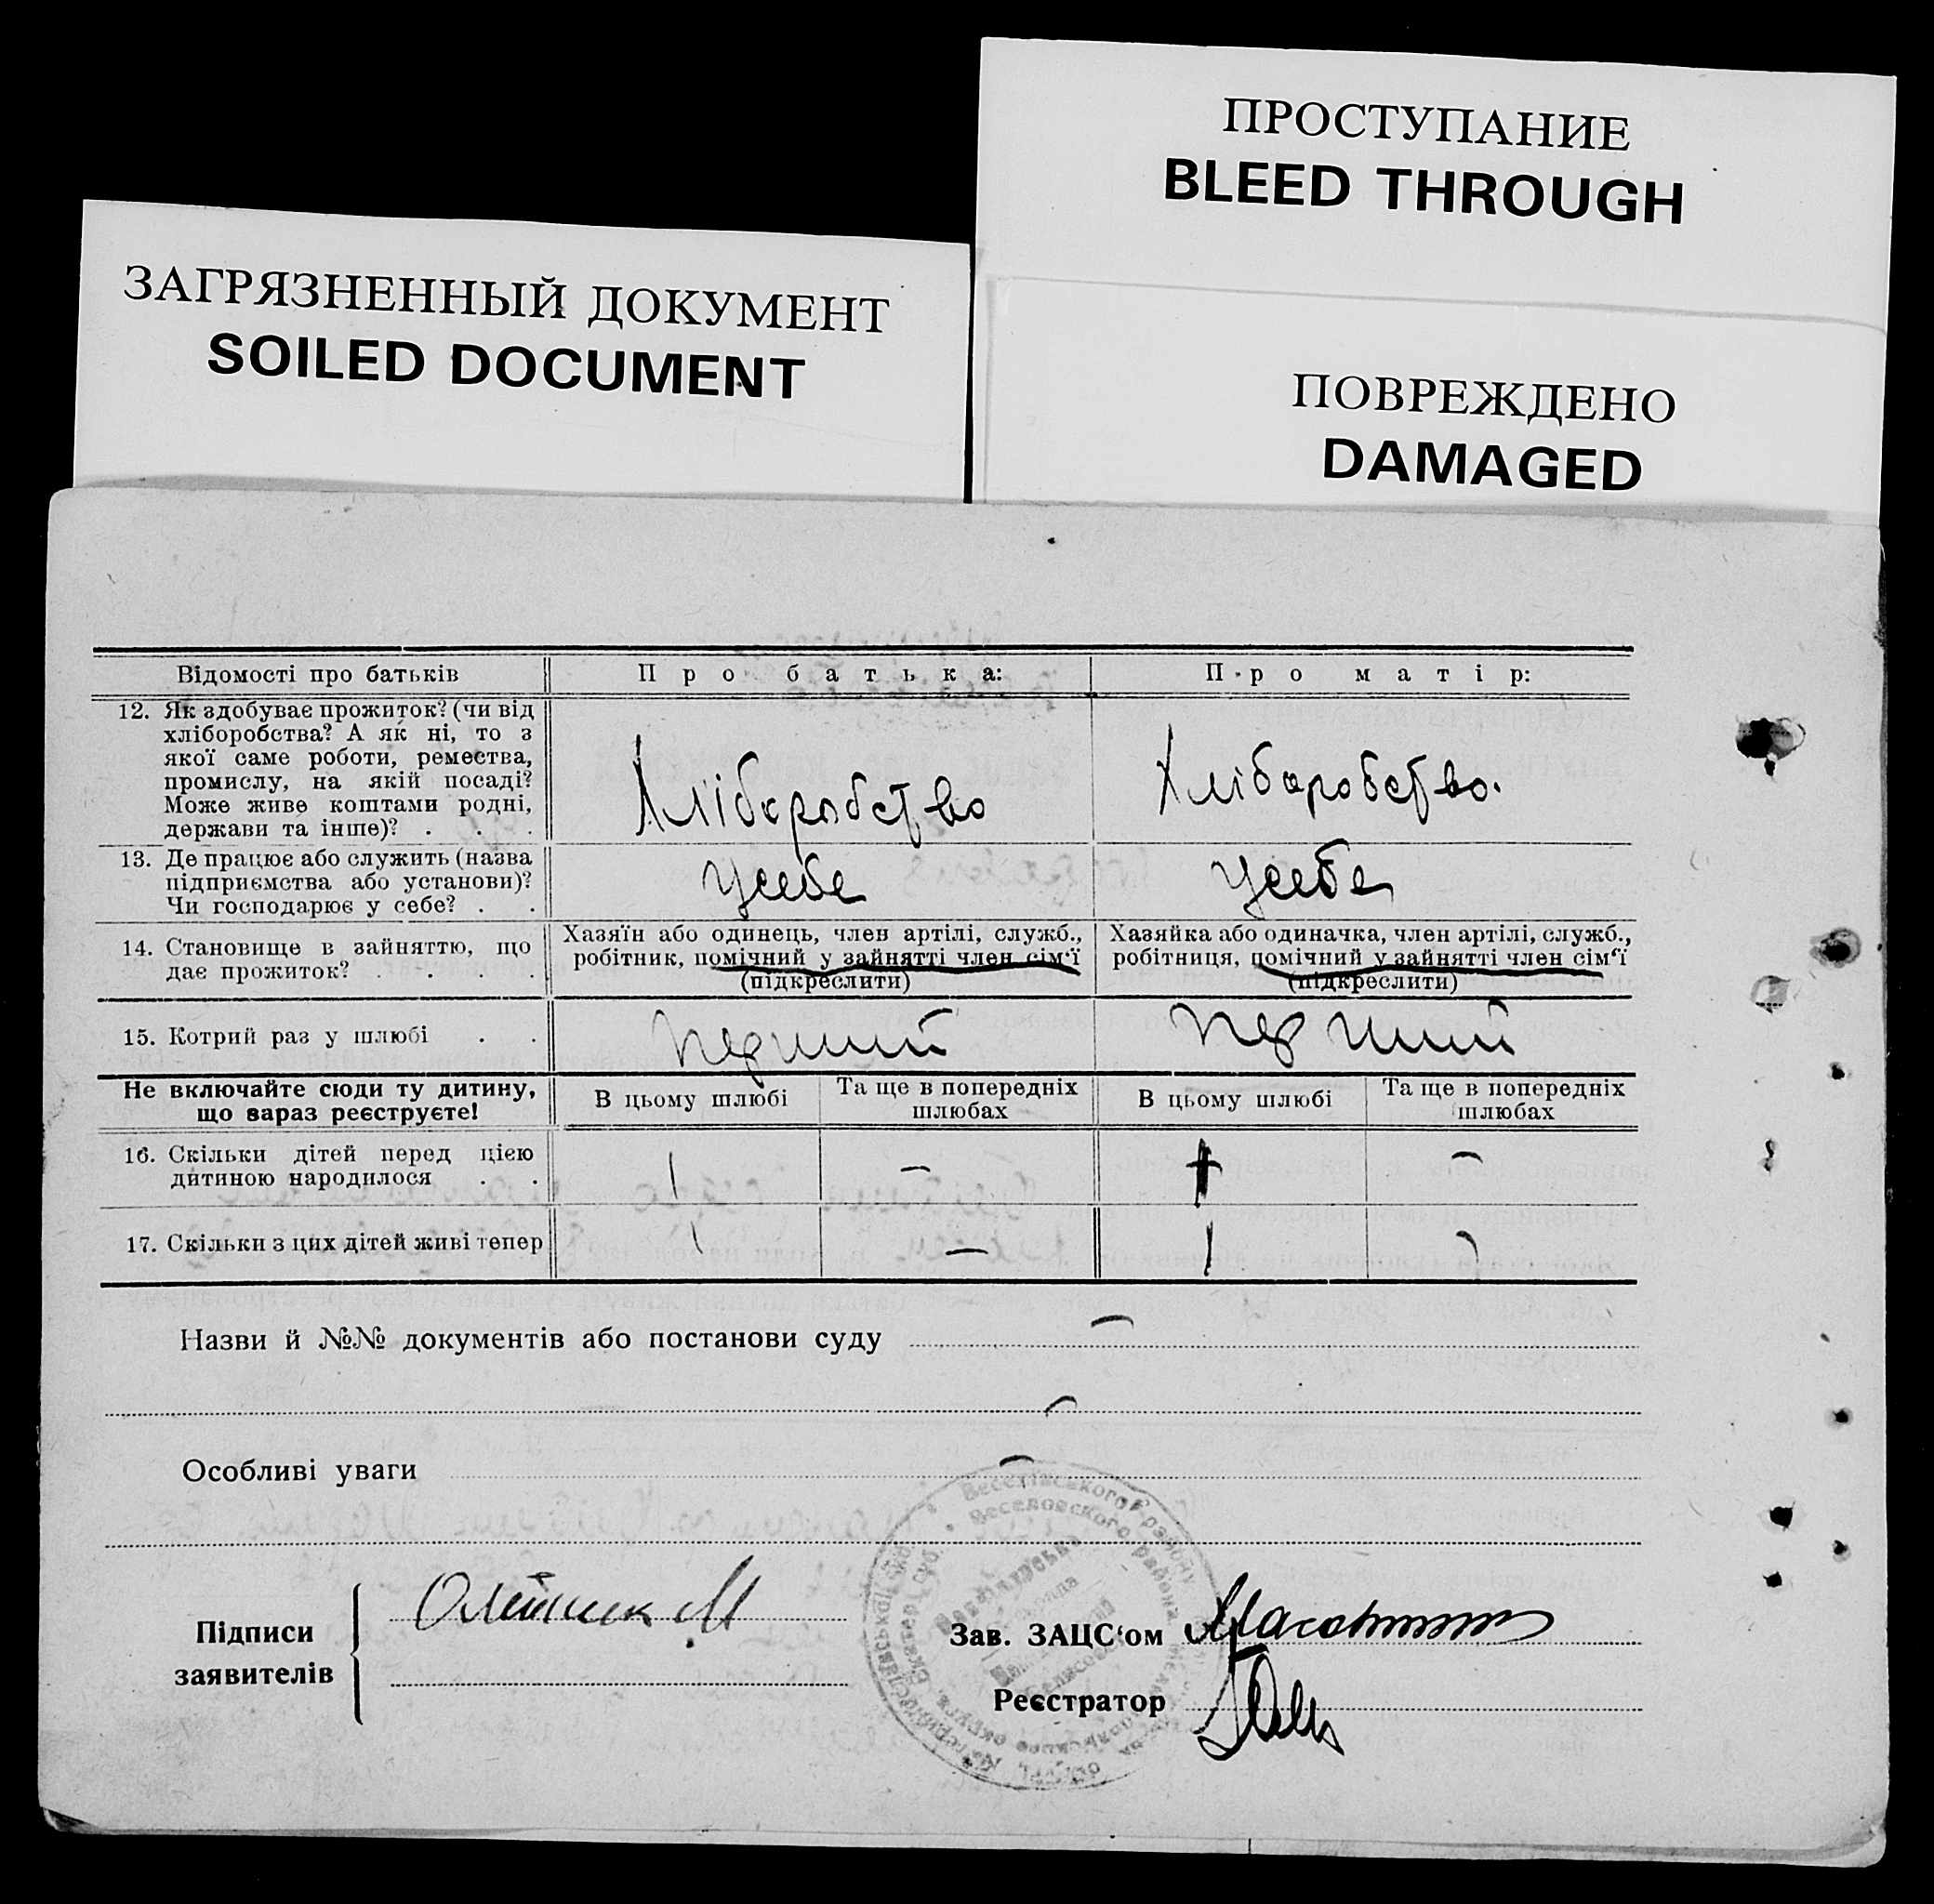 ПРОСТУПАНИЕ
BLEED THROUGH
ЗАГРЯЗНЕННЫЙ ДОКУМЕНТ
SOILED DOCUMENT
ПОВРЕЖДЕНО
DAMAGED
Відомості про батьків
Про батька:
Про матір:
12. Як здобуває прожиток? (чи від
хліборобства? А як ні, то з
якої саме роботи, ремества,
промислу, на якій посаді?
Може живе коштами родні,
держави та інше)? . . .
Хліборобство
Хліборобство.
13. Де працює або служить (назва
підприємства або установи)?
Чи господарює у себе? . .
Усебе
Усебе
14. Становище в зайняттю, що
дає прожиток? . . .
Хазяїн або одинець, член артілі, служб.,
робітник, помічний у зайнятті член сім'ї
(підкреслити)
Хазяйка або одиначка, член артілі, служб.,
робітниця, помічний у зайнятті член сім'ї
(підкреслити)
15. Котрий раз у шлюбі . .
перший
перший
Не включайте сюди ту дитину,
що вараз реєструєте!
В цьому шлюбі
Та ще в попередніх
шлюбах
В цьому шлюбі
Та ще в попередніх
шлюбах
16. Скільки дітей перед цією
дитиною народилося . .
1 — 1 —
17. Скільки з цих дітей живі тепер
1 — 1 —
Назви й №№ документів або постанови суду —
—
Особливі уваги —
Веселівського району
Веселовского района
Підписи
заявителів
Олейник М
Зав. ЗАЦС'ом
Реєстратор